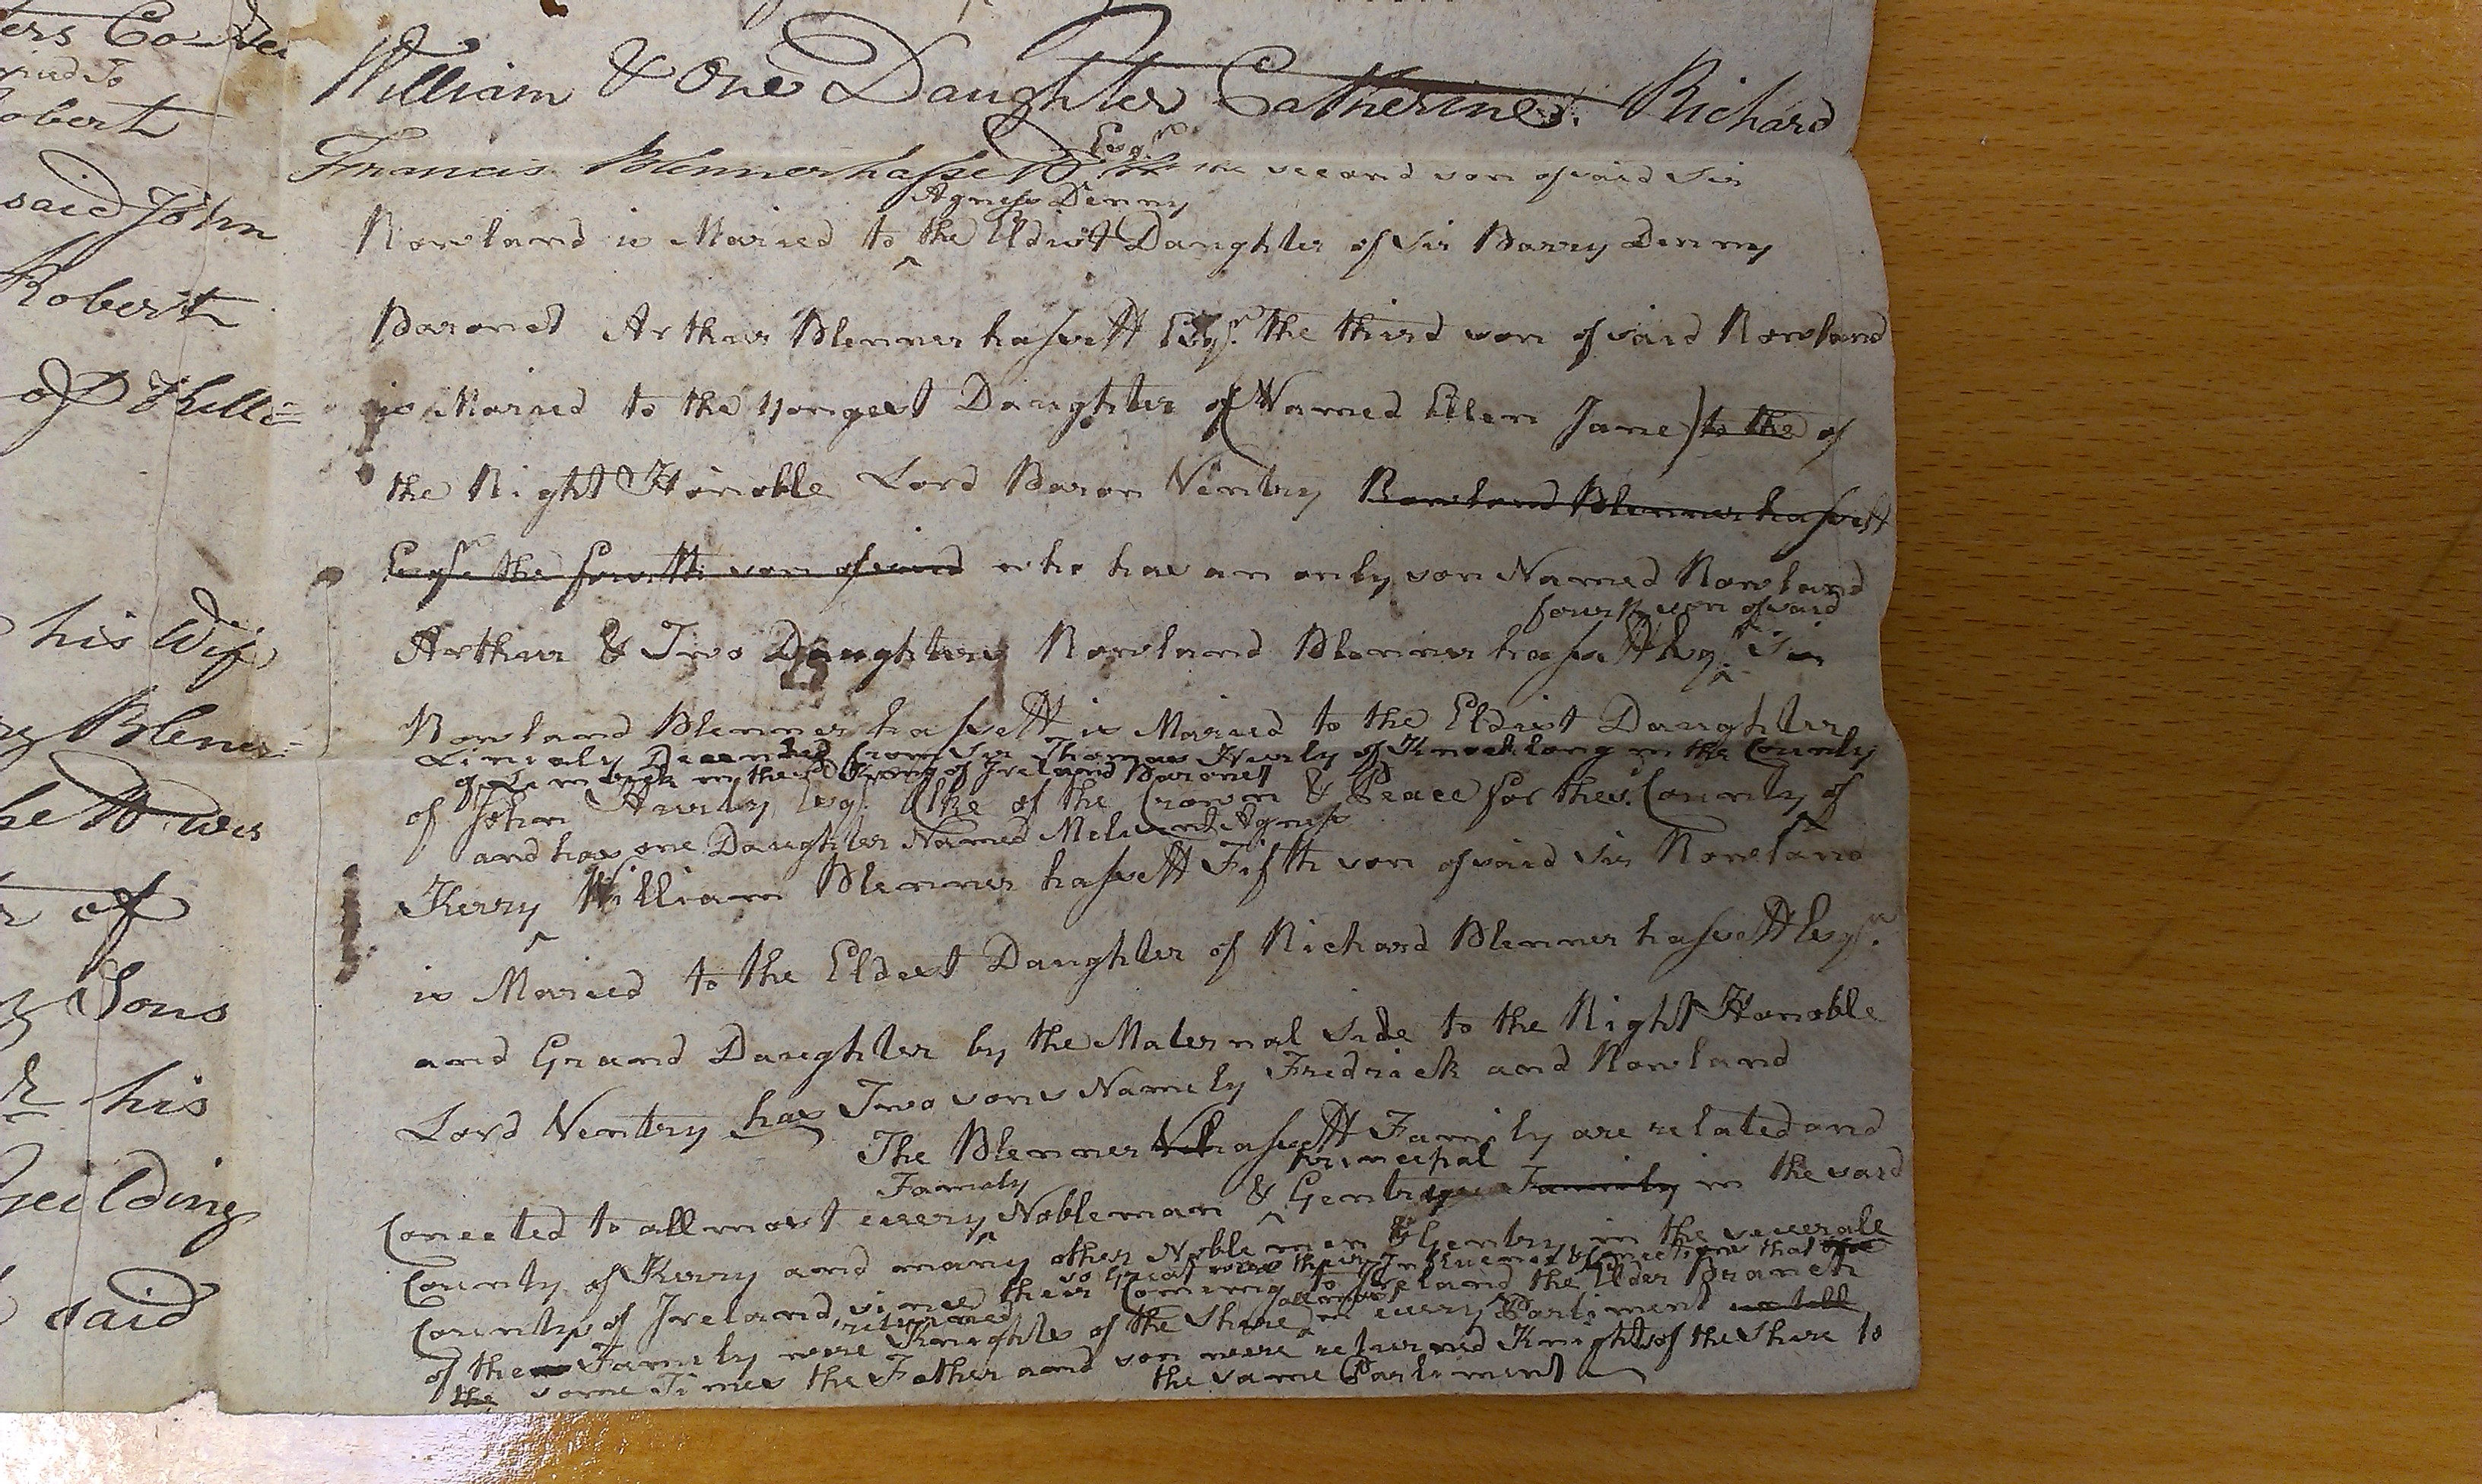 ers Co
ried To
obert
said John
Robert
of Kille=
his Wife
Blener=
was
of
Sons
his
said
William & One Daughter Catherine. Richard
Esqr.
Francis Blennerhassett the second son of said Sir
Agness Denny
Rowland is Maried to ^ the Eldist Daughter of Sir Barry Denny
Baronet Arthur Blennerhassett Esqr. the third son of said Rowland
is Maried to the yongest Daughter of (Named Ellen Jane) to the of
the Right Honoble Lord Baron Ventry Rowland Blennerhassett
Esqr. the fourth son of said who has an only son Named Rowland
fourth son of said
Arthur & Two Daughters Rowland Blennerhassett Esqr. ^ Sir
Rowland Blennerhassett is Maried to the Eldist Daughter
Linialy Decended from Sir Thomas Hurly of Knocklong in the County
of Limbrick in the Kring of Ireland Baronet
of John Hurly Esqr. Clke of the Crown & Peace for the County of
and has one Daughter Named Melisent Agness
Kerry ^ William Blennerhassett Fifth son of said Sir Rowland
is Maried to the Eldest Daughter of Richard Blennerhassett Esqr.
and Grand Daughter by the Maternal Side to the Right Honoble
Lord Ventry has Two sons Namely Fredrick and Rowland
The Blennerhassett Family are related and
Famaly principal
Conected to all most every ^ Nobleman & ^ Gentry Family in the said
County of Kerry and many other Noblemen & Gentry in the severale
so Great was their Influence & Conections that
Countys of Ireland, since their Coming to Ireland the Elder Branch
returned allmost
of the Family were Knights of the Shire ^ in every Parliment
the some Times the Father and son were returned Knights of the Shire to
the same Parliment